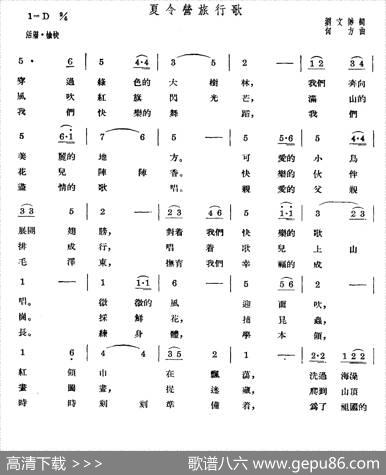 夏令營旅行歌
1=D 2/4
劉文博詞
活潑・愉快
何方曲
5・ 6 | 5 4・4 | 3 5 | 2 - | 1 2 3 4 |
穿過綠色的大樹林，我們奔向
風吹紅旗閃光芒，滿山的
我們快樂的舞蹈，我們
5 6・1 | 7 6 | 5 - | 5 5・6 | 5 4・4 |
美麗的地方。可愛的小鳥
花兒陣陣香。快樂的伙伴
盡情的歌唱。親愛的父親
3 3 5 | 2 - | 2 3 4 6 | 5 i・i | 3 2 3 |
展開翅膀，對着我們快樂的歌
排成行，唱着歌兒上山
毛澤東，撫育我們幸福的成
1 - | 1 1・1 | 6 - | 5 5 6 | 2 - |
唱。微微的風迎面吹，
崗。採鮮花，捕昆蟲，
長。練身體，學本領，
1 6 | 4 4 | 3 5 2 | 1 - | 2・2 1 2 2 |
紅領巾在飄蕩，洗過海澡
畫圖畫，捉迷藏，爬到山頂
時時刻刻準備着，爲了祖國的
高清下载 >>>
歌谱八六 www.gepu86.com